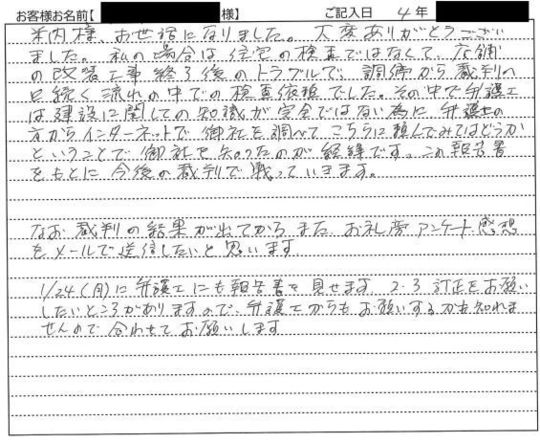 お客様お名前【 様】 ご記入日 4年
米内様、お世話になりました。大変ありがとうござい
ました。私の場合は住宅の検査ではなくて、店舗
の改装工事終了後のトラブルで、調停から裁判へ
と続く流れの中での検査依頼でした。その中で弁護士
は建設に関しての知識が完全ではない為に弁護士の
方からインターネットで御社を調べて、こちらに頼んでみてはどうか
ということで御社を知ったのが経緯です。この報告書
をもとに今後の裁判で戦っていきます。
なお、裁判の結果が出てから、また、お礼 アンケート感想
をメールで送信したいと思います
1/24(月)に弁護士にも報告書を見せます 2.3訂正をお願い
したいところがありますので、弁護士からもお願いするかも知れま
せんので合わせてお願いします